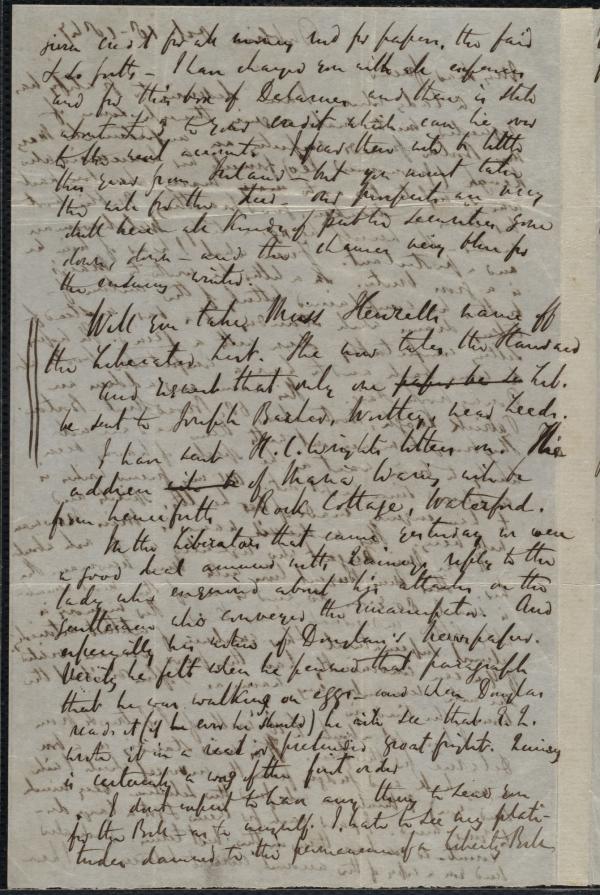 given credit for all money rec'd for papers, the fair
& so forth – I have charged you with all expenses
and for this box of Delarue and there is still
about to your credit which can lie over
to the next account. I fear there will be little
this year from Ireland but you must take
the will for the deed – our prospects are very
dull here – all kinds of public securities gone
down, down – and the chances very blue for
the ensuing winter.
Will you take Miss Hewrells name off
the Liberator list. She now takes the Standard
And request that only one paper be to Lib.
be sent to Joseph Barker, Wortley, near Leeds.
I have sent H. C. Wright's letters on. The
address it is of Maria Waring will be
from henceforth Rock Cottage, Waterford.
In the Liberators that came yesterday we were
a good deal amused with Quincy's reply to the
lady who enquired about his attacks on the
gentlemen who conveyed the Emancipator. And
especially his notice of Douglass's newspaper.
Verily he felt when he penned that paragraph
that he was walking on eggs – and when Douglas
reads it (if he ever he should) he will see that E. Q.
wrote it in a real or pretended great fright. Quincy
is certainly a wag of the first order
I don't expect to have any thing to send you
for the Bell – as to myself. I hate to see my plati-
tudes damned to the permanence of a Liberty Bell